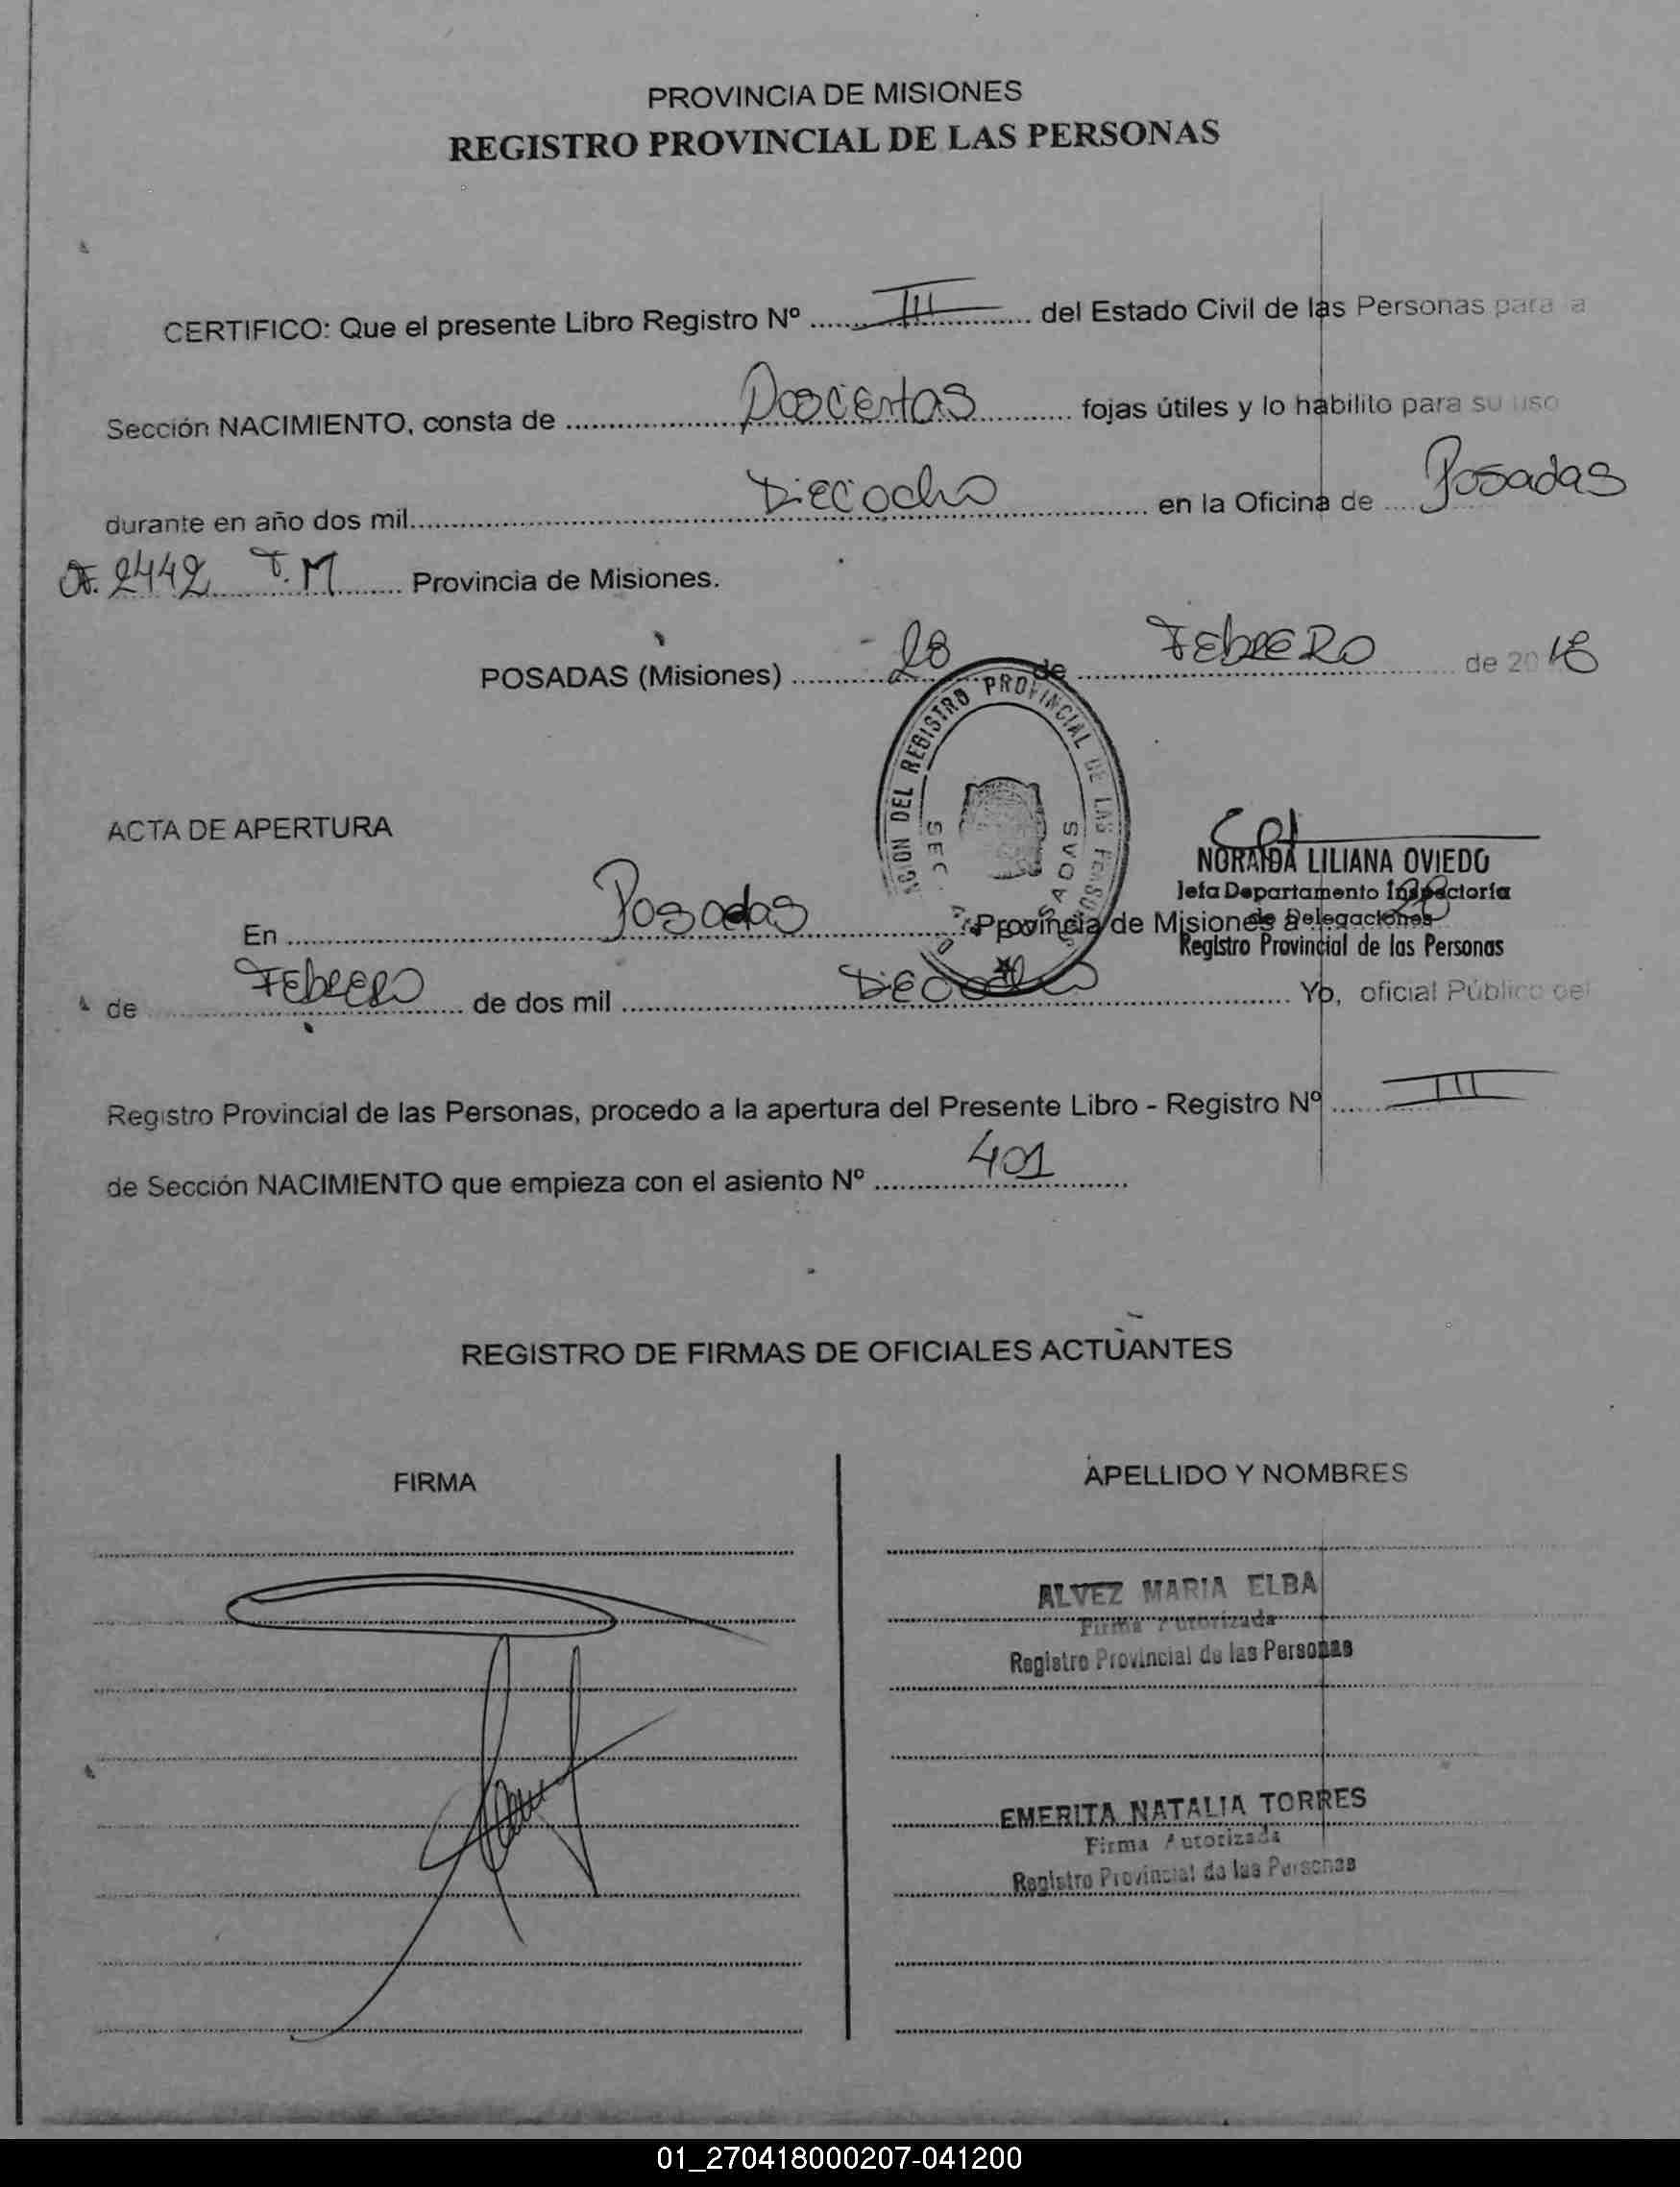 PROVINCIA DE MISIONES
REGISTRO PROVINCIAL DE LAS PERSONAS
CERTIFICO: Que el presente Libro Registro Nº III del Estado Civil de las Personas para la
Sección NACIMIENTO, consta de Doscientas fojas útiles y lo habilito para su uso
durante en año dos mil Dieciocho en la Oficina de Posadas
Of. 2442 T.M Provincia de Misiones.
POSADAS (Misiones) 28 de Febrero de 2018
REGISTRO PROVINCIAL DE LAS
SEC. POSADAS
ACTA DE APERTURA
NORAIDA LILIANA OVIEDO
Jefa Departamento Inspectoría
de Delegaciones
Registro Provincial de las Personas
En Posadas Provincia de Misiones a 28
de Febrero de dos mil Dieciocho Yo, oficial Público del
Registro Provincial de las Personas, procedo a la apertura del Presente Libro - Registro Nº III
de Sección NACIMIENTO que empieza con el asiento Nº 401
REGISTRO DE FIRMAS DE OFICIALES ACTUANTES
FIRMA APELLIDO Y NOMBRES
ALVEZ MARIA ELBA
Firma Autorizada
Registro Provincial de las Personas
EMERITA NATALIA TORRES
Firma Autorizada
Registro Provincial de las Personas
01_270418000207-041200